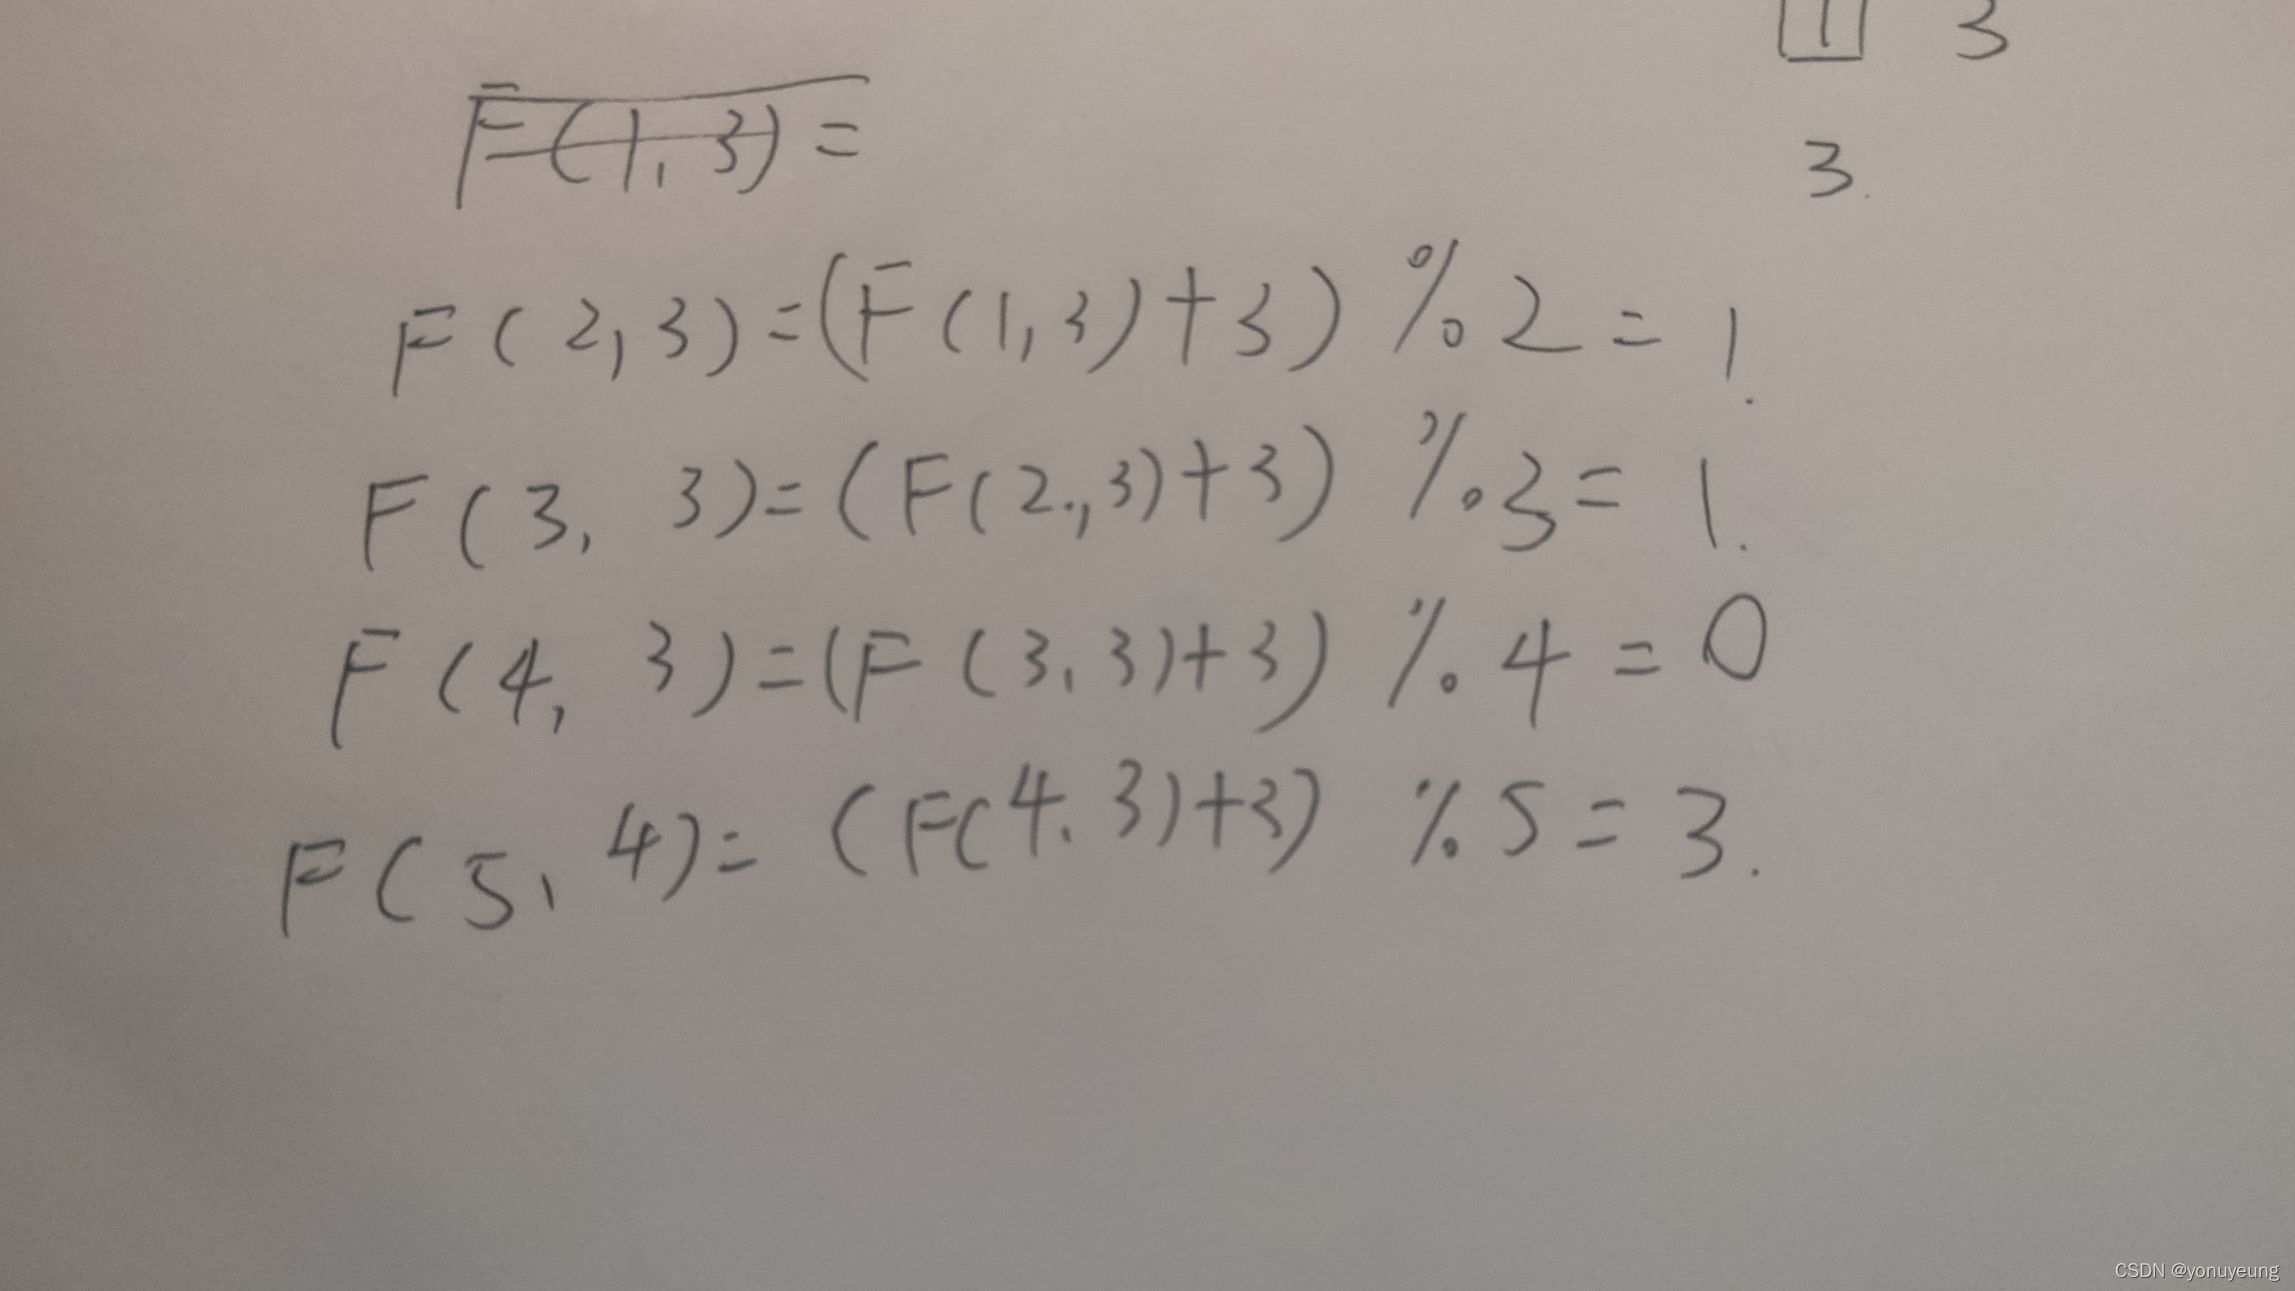 1 3
3.
F(1,3)=
F(2,3)=(F(1,3)+3) %2=1.
F(3, 3)=(F(2.,3)+3) %3=1.
F(4, 3)=(F(3,3)+3) %4=0
F(5,4)=(F(4.3)+3) %5=3.
CSDN @yonuyeung